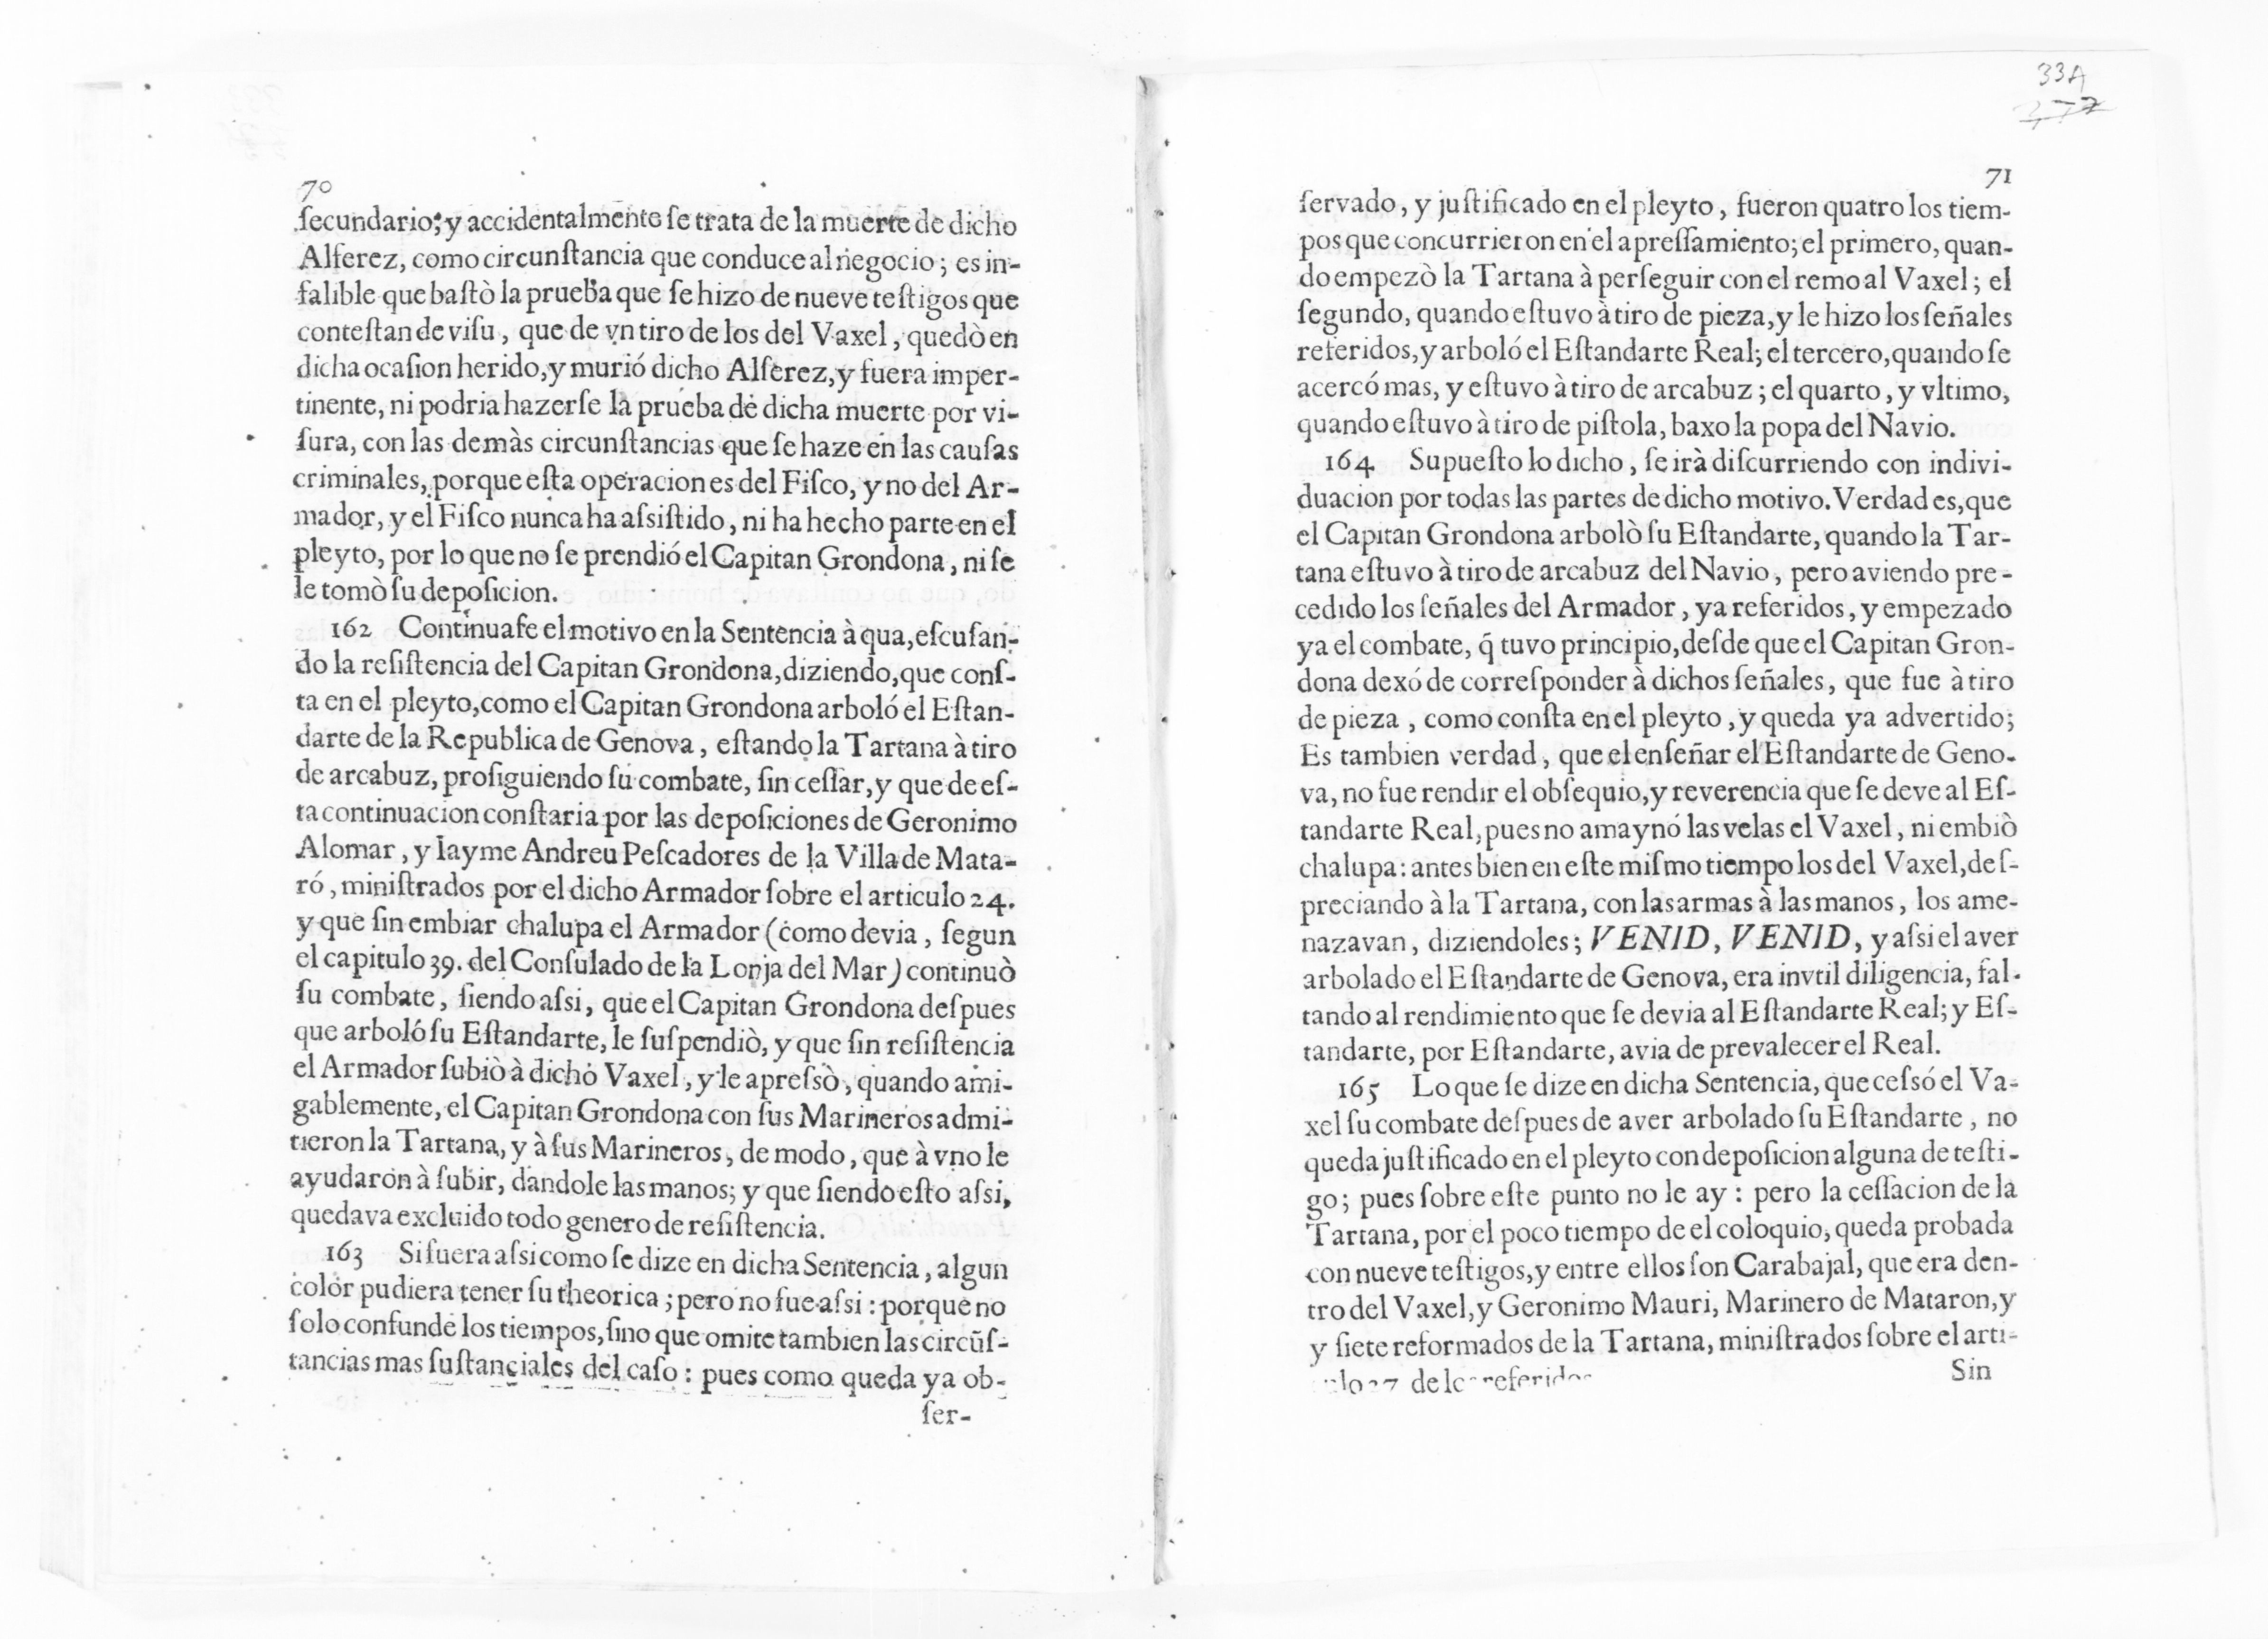 70
ſecundario; y accidentalmente ſe trata de la muerte de dicho
Alferez, como circunſtancia que conduce al negocio; es in-
falible que baſtò la prueba que ſe hizo de nueve teſtigos que
conteſtan de viſu, que de vn tiro de los del Vaxel, quedò en
dicha ocaſion herido, y murió dicho Alferez, y fuera imper-
tinente, ni podria hazerſe la prueba de dicha muerte por vi-
ſura, con las demàs circunſtancias que ſe haze en las cauſas
criminales, porque eſta operacion es del Fiſco, y no del Ar-
mador, y el Fiſco nunca ha aſsiſtido, ni ha hecho parte en el
pleyto, por lo que no ſe prendió el Capitan Grondona, ni ſe
le tomò ſu depoſicion.
162 Continuaſe el motivo en la Sentencia à qua, eſcuſan-
do la reſiſtencia del Capitan Grondona, diziendo, que conſ-
ta en el pleyto, como el Capitan Grondona arboló el Eſtan-
darte de la Republica de Genova, eſtando la Tartana à tiro
de arcabuz, proſiguiendo ſu combate, ſin ceſſar, y que de eſ-
ta continuacion conſtaria por las depoſiciones de Geronimo
Alomar, y Iayme Andreu Peſcadores de la Villa de Mata-
ró, miniſtrados por el dicho Armador ſobre el articulo 24.
y que ſin embiar chalupa el Armador (como devia, ſegun
el capitulo 39. del Conſulado de la Lonja del Mar) continuò
ſu combate, ſiendo aſsi, que el Capitan Grondona deſpues
que arboló ſu Eſtandarte, le ſuſpendiò, y que ſin reſiſtencia
el Armador ſubiò à dicho Vaxel, y le apreſsò, quando ami-
gablemente, el Capitan Grondona con ſus Marineros admi-
tieron la Tartana, y à ſus Marineros, de modo, que à vno le
ayudaron à ſubir, dandole las manos; y que ſiendo eſto aſsi,
quedava excluido todo genero de reſiſtencia.
163 Si fuera aſsi como ſe dize en dicha Sentencia, algun
color pudiera tener ſu theorica; pero no fue aſsi: porque no
ſolo confunde los tiempos, ſino que omite tambien las circũſ-
tancias mas ſuſtanciales del caſo: pues como queda ya ob-
ſer-
33A
377
71
ſervado, y juſtificado en el pleyto, fueron quatro los tiem-
pos que concurrieron en el apreſſamiento; el primero, quan-
do empezò la Tartana à perſeguir con el remo al Vaxel; el
ſegundo, quando eſtuvo à tiro de pieza, y le hizo los ſeñales
referidos, y arboló el Eſtandarte Real; el tercero, quando ſe
acercó mas, y eſtuvo à tiro de arcabuz; el quarto, y vltimo,
quando eſtuvo à tiro de piſtola, baxo la popa del Navio.
164 Supueſto lo dicho, ſe irà diſcurriendo con indivi-
duacion por todas las partes de dicho motivo. Verdad es, que
el Capitan Grondona arbolò ſu Eſtandarte, quando la Tar-
tana eſtuvo à tiro de arcabuz del Navio, pero aviendo pre-
cedido los ſeñales del Armador, ya referidos, y empezado
ya el combate, q̃ tuvo principio, deſde que el Capitan Gron-
dona dexó de correſponder à dichos ſeñales, que fue à tiro
de pieza, como conſta en el pleyto, y queda ya advertido;
Es tambien verdad, que el enſeñar el Eſtandarte de Geno-
va, no fue rendir el obſequio, y reverencia que ſe deve al Eſ-
tandarte Real, pues no amaynó las velas el Vaxel, ni embiò
chalupa: antes bien en eſte miſmo tiempo los del Vaxel, deſ-
preciando à la Tartana, con las armas à las manos, los ame-
nazavan, diziendoles; VENID, VENID, y aſsi el aver
arbolado el Eſtandarte de Genova, era invtil diligencia, fal-
tando al rendimiento que ſe devia al Eſtandarte Real; y Eſ-
tandarte, por Eſtandarte, avia de prevalecer el Real.
165 Lo que ſe dize en dicha Sentencia, que ceſsó el Va-
xel ſu combate deſpues de aver arbolado ſu Eſtandarte, no
queda juſtificado en el pleyto con depoſicion alguna de teſti-
go; pues ſobre eſte punto no le ay: pero la ceſſacion de la
Tartana, por el poco tiempo de el coloquio, queda probada
con nueve teſtigos, y entre ellos ſon Carabajal, que era den-
tro del Vaxel, y Geronimo Mauri, Marinero de Mataron, y
y ſiete reformados de la Tartana, miniſtrados ſobre el arti-
de los referidos
Sin